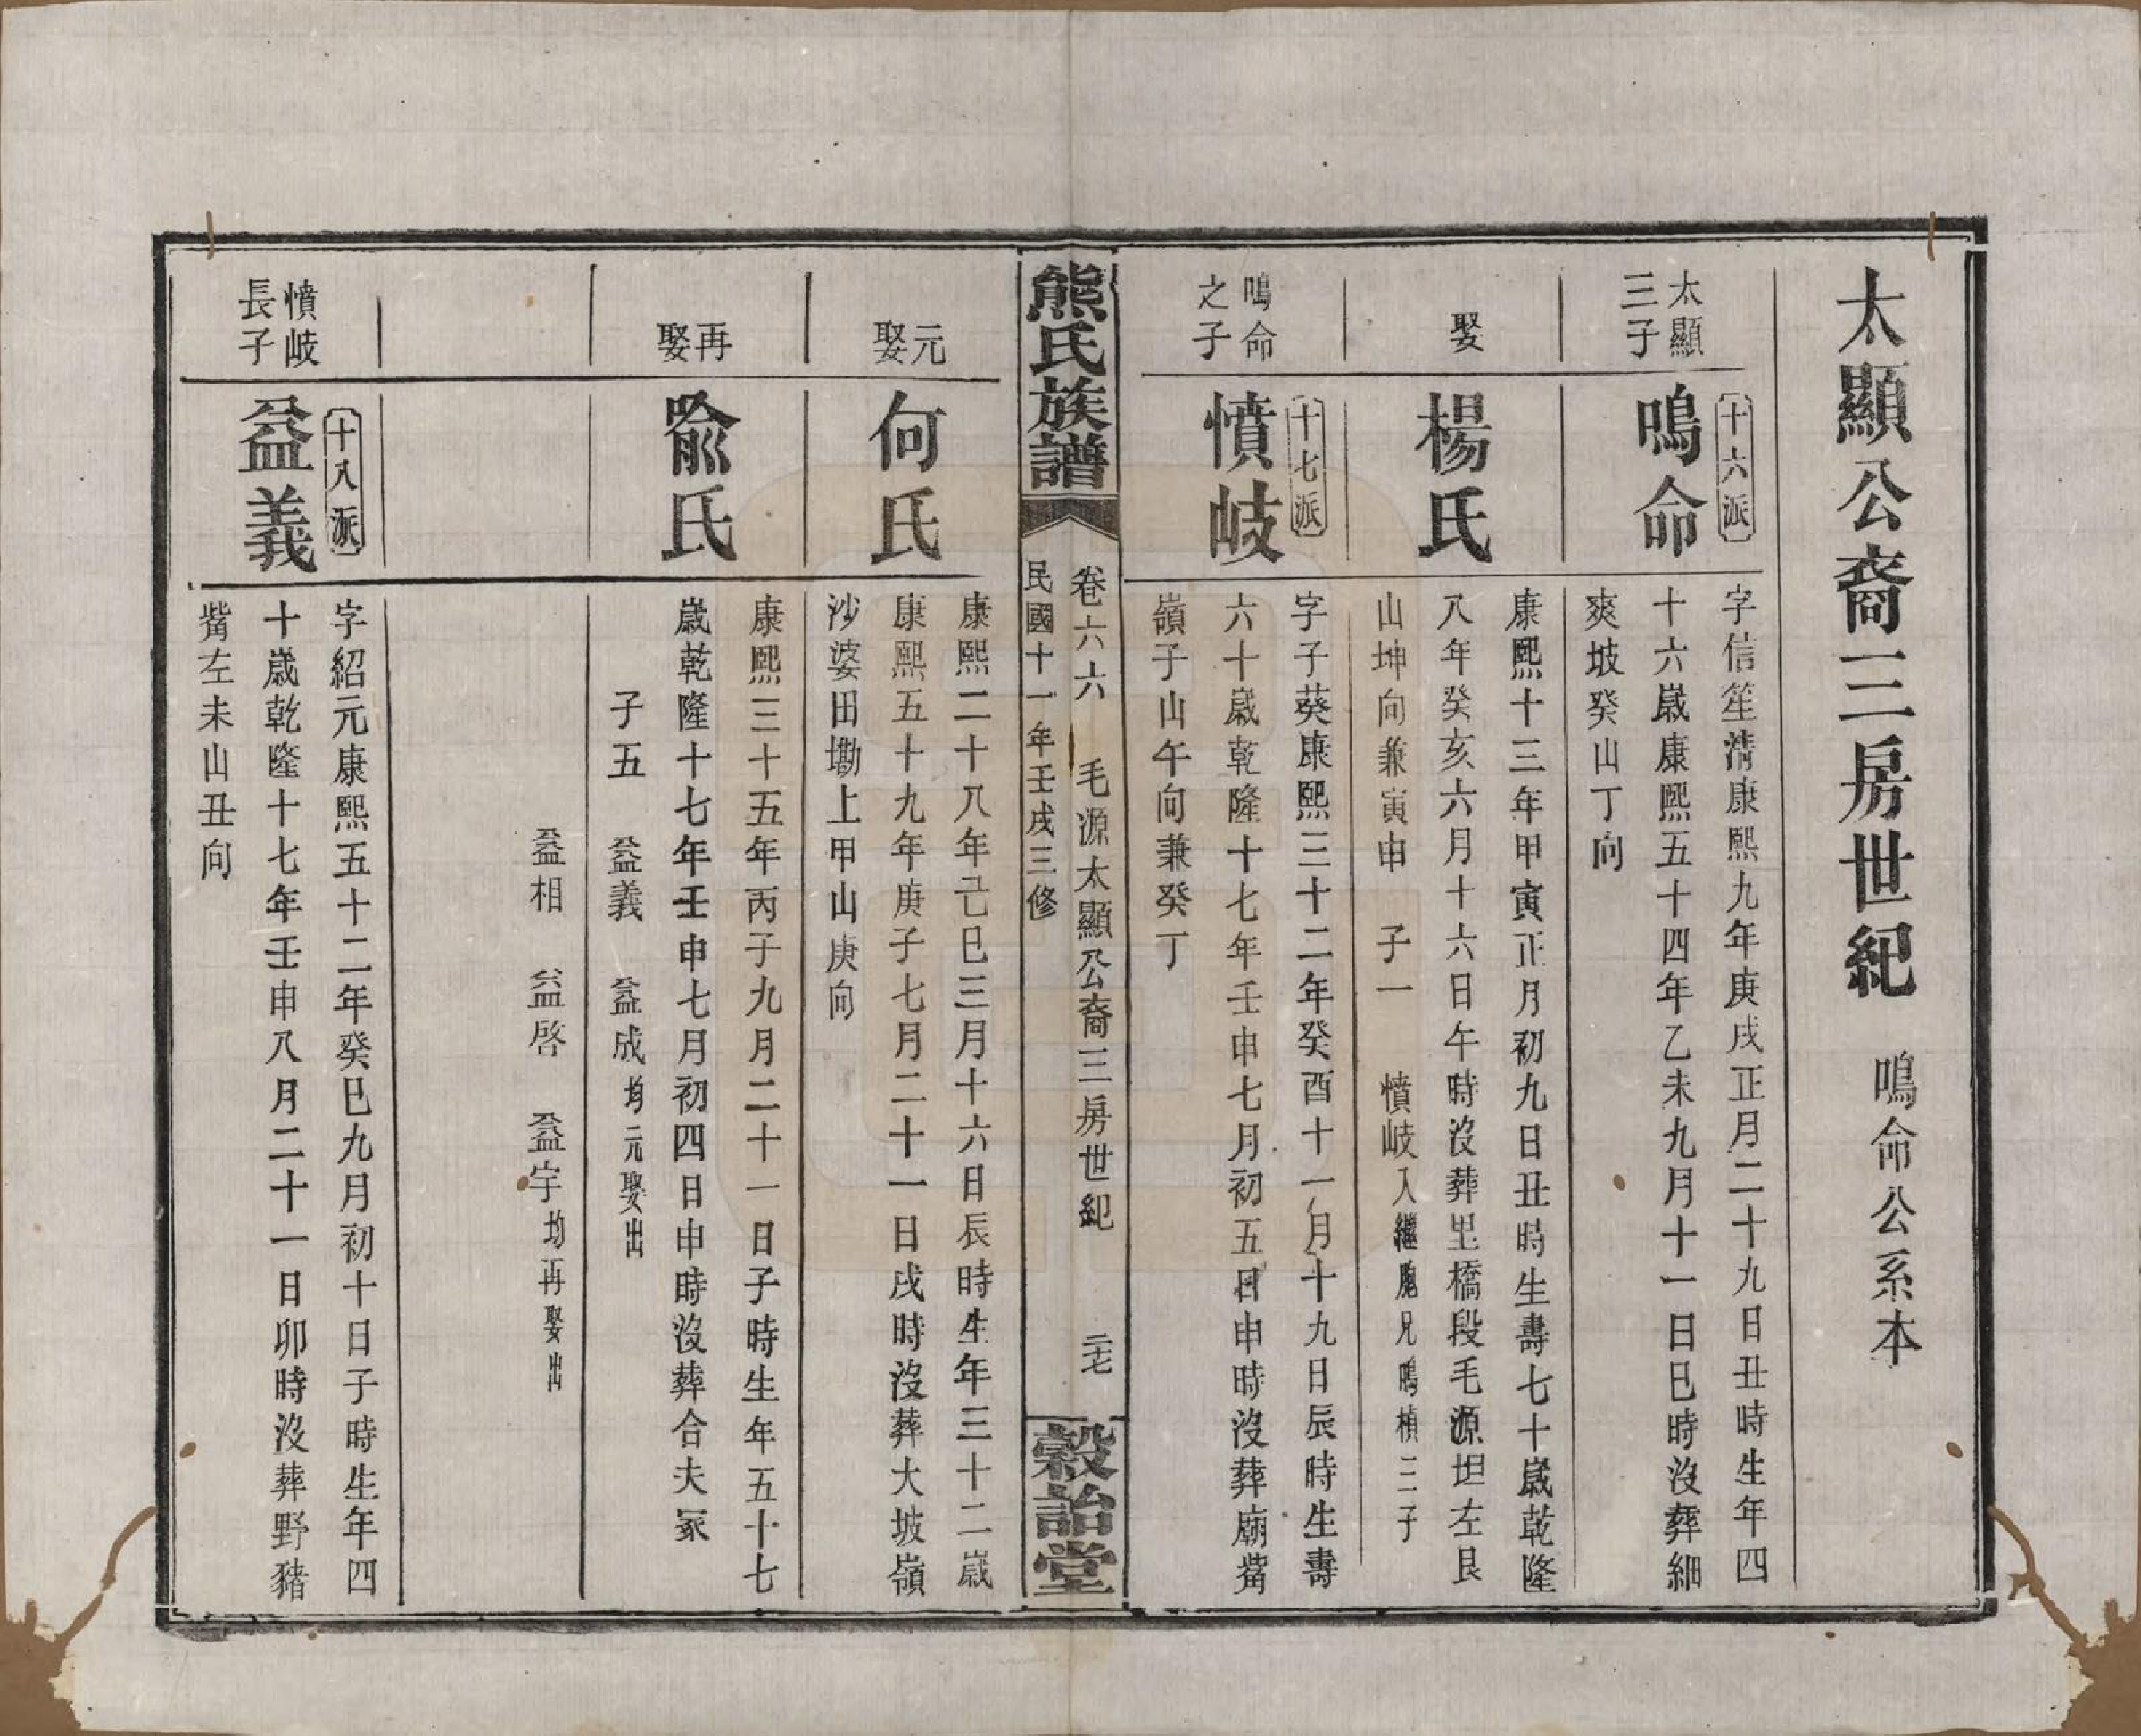 太顯公裔三房世紀 鳴命公系本
太顯
三子
十六派
鳴命
字信笙清康熙九年庚戌正月二十九日丑時生年四
十六歲康熙五十四年乙未九月十一日巳時沒葬細
爽坡癸山丁向
娶
楊氏
康熙十三年甲寅正月初九日丑時生壽七十歲乾隆
八年癸亥六月十六日午時沒葬里橋段毛源坦左艮
山坤向兼寅申 子一 憤岐入繼胞兄鳴楨三子
鳴命
之子
十七派
憤岐
字子葵康熙三十二年癸酉十一月十九日辰時生壽
六十歲乾隆十七年壬申七月初五日申時沒葬廟觜
嶺子山午向兼癸丁
熊氏族譜
卷六六 毛源太顯公裔三房世紀 二七
民國十一年壬戌三修
穀詒堂
元
娶
何氏
康熙二十八年己巳三月十六日辰時生年三十二歲
康熙五十九年庚子七月二十一日戌時沒葬大坡嶺
沙婆田墈上甲山庚向
再
娶
喩氏
康熙三十五年丙子九月二十一日子時生年五十七
歲乾隆十七年壬申七月初四日申時沒葬合夫冢
子五 益義 益成均元娶出
益相 益啓 益宇均再娶出
憤岐
長子
十八派
益義
字紹元康熙五十二年癸巳九月初十日子時生年四
十歲乾隆十七年壬申八月二十一日卯時沒葬野豬
觜左未山丑向